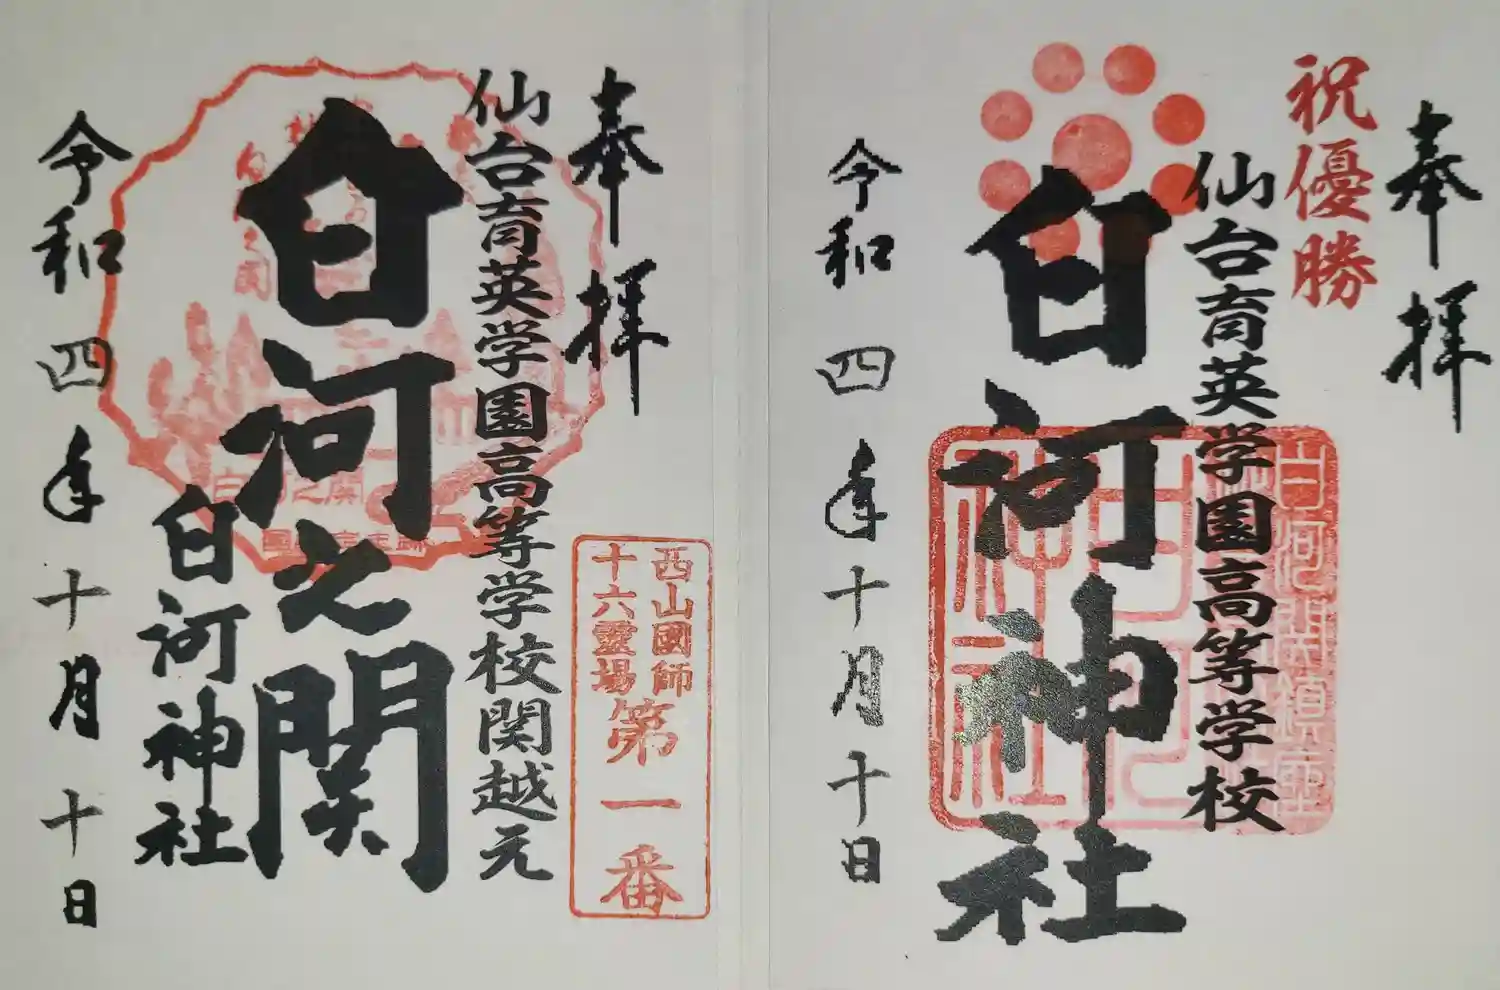 祝優勝
奉拝
仙台育英学園高等学校
白河神社
白河関鎮座
令和四年十月十日
奉拝
仙台育英学園高等学校関越元
西山國師
十六霊場
第一番
白河之関
白河神社
令和四年十月十日